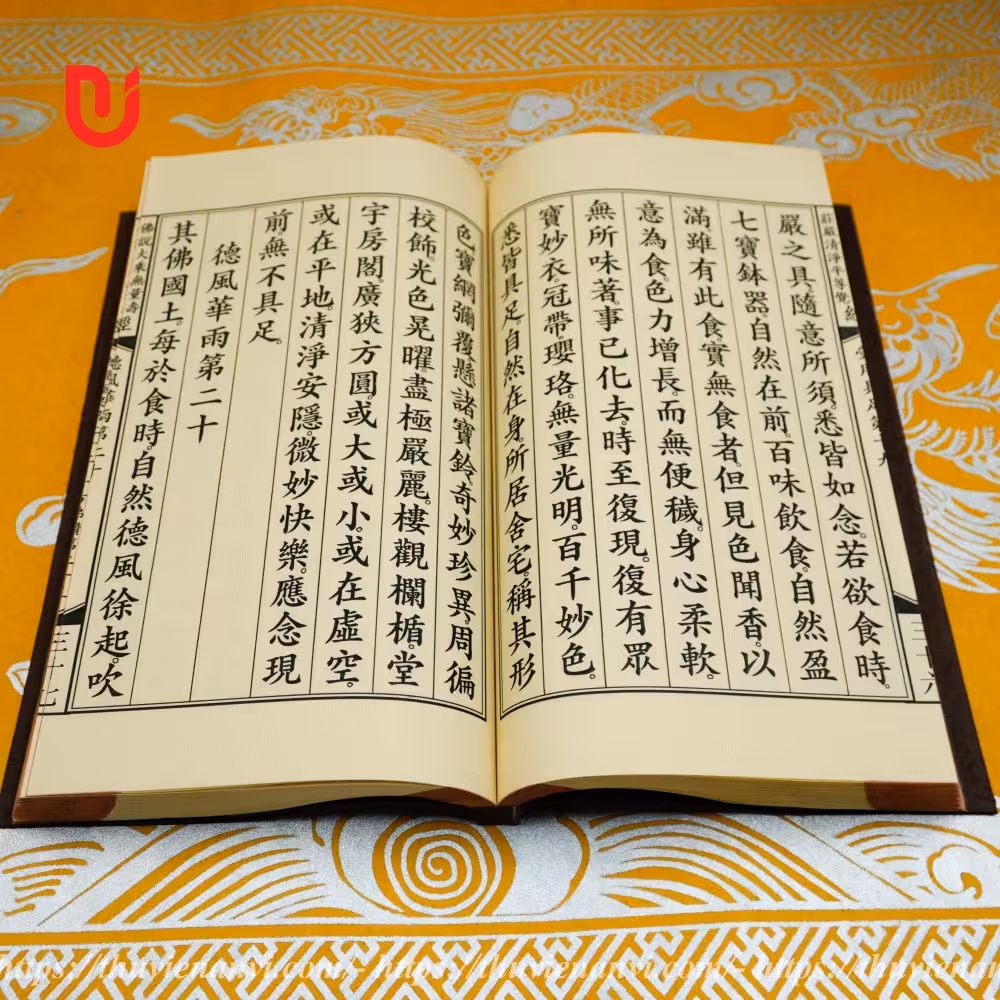 莊嚴清淨平等覺經
嚴之具。隨意所須。悉皆如念。若欲食時。
七寶鉢器。自然在前。百味飲食。自然盈
滿。雖有此食。實無食者。但見色聞香。以
意為食。色力增長。而無便穢。身心柔軟。
無所味著。事已化去。時至復現。復有眾
寶妙衣。冠帶瓔珞。無量光明。百千妙色。
悉皆具足。自然在身。所居舍宅。稱其形
色寶網彌覆。懸諸寶鈴。奇妙珍異。周徧
校飾。光色晃曜。盡極嚴麗。樓觀欄楯。堂
宇房閣。廣狹方圓。或大或小。或在虛空。
或在平地。清淨安隱。微妙快樂。應念現
前。無不具足。
德風華雨第二十
其佛國土。每於食時。自然德風徐起。吹
佛說大乘無量壽
德風華雨第二十
三十七
https://thuvienanvi.com/ - https://thuvienanvi.com/ - https://thuvienan